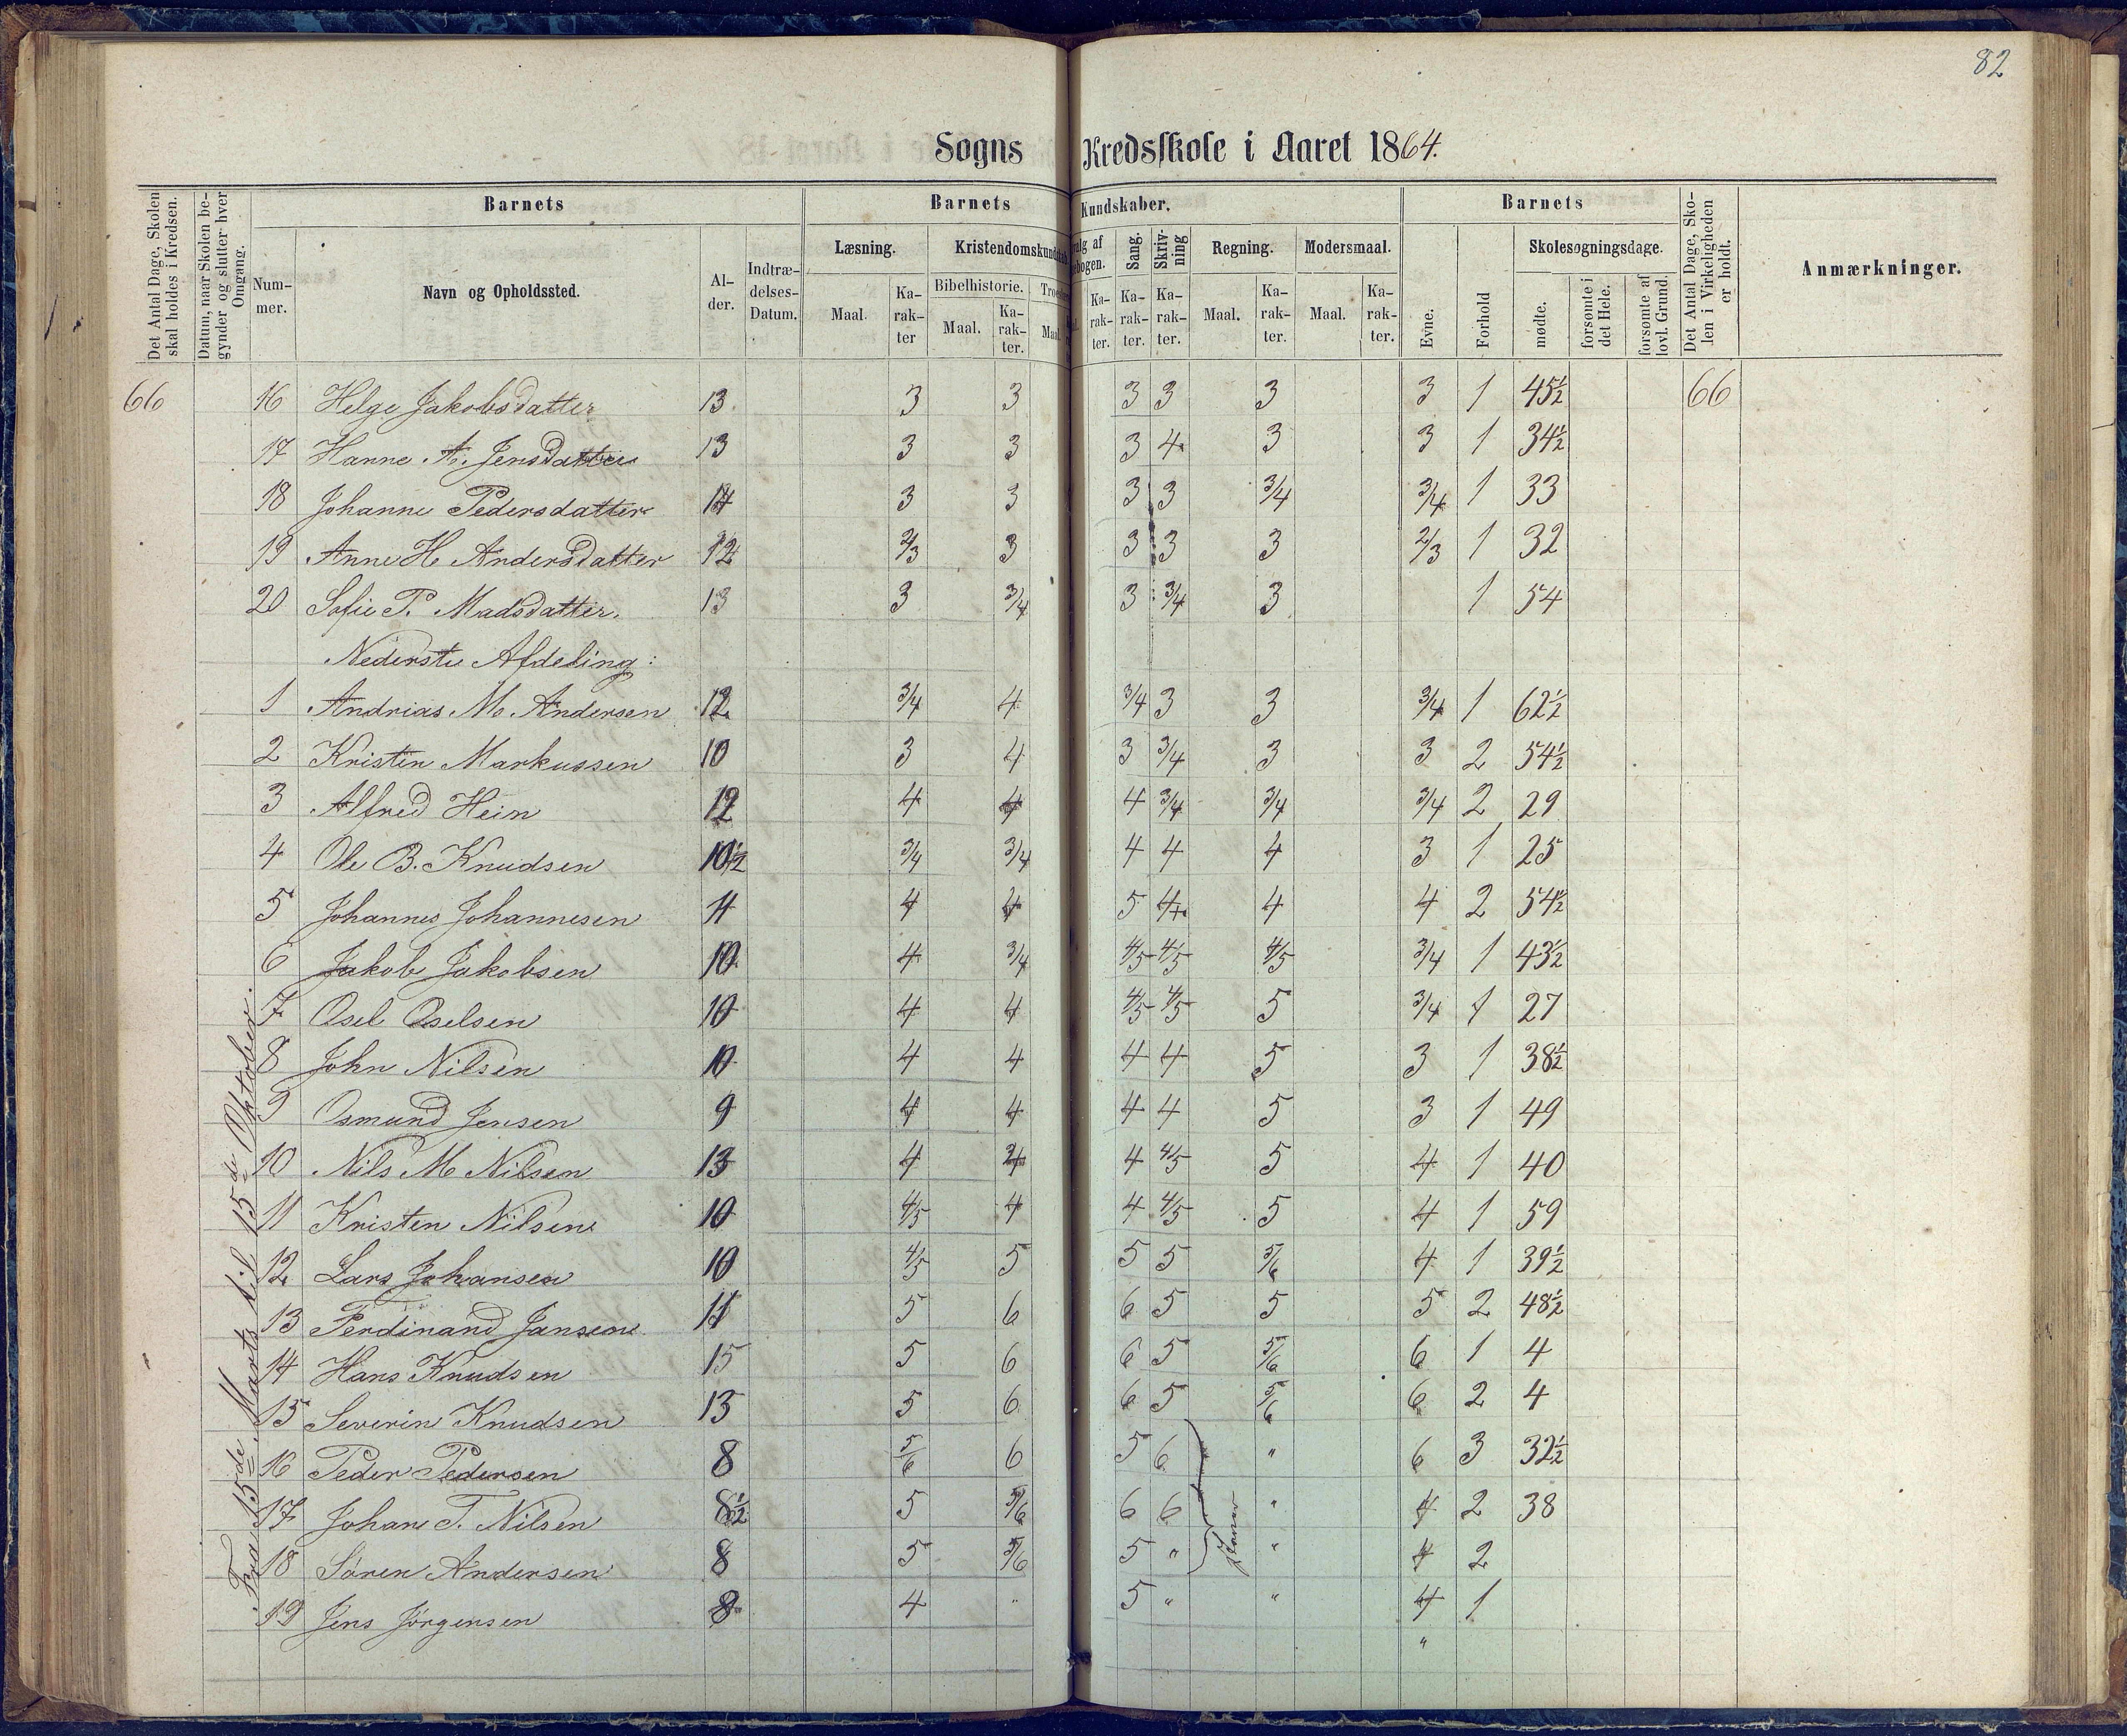 82
Sogns Kredsskole i Aaret 1864.
Det Antal Dage, Skolen skal holdes i Kredsen.
Datum, naar Skolen begynder og slutter hver Omgang.
Barnets
Nummer.
Navn og Opholdssted.
Alder.
Indtrædelses-Datum.
Barnets Kundskaber.
Læsning.
Maal.
Karakter
Kristendomskundskab
Bibelhistorie.
Maal.
Karakter.
Troes
Maal.
valg af
ebogen.
Karakter.
Sang.
Karakter.
Skrivning
Karakter.
Regning.
Maal.
Karakter.
Modersmaal.
Maal.
Karakter.
Barnets
Evne.
Forhold
Skolesøgningsdage.
mødte.
forsømte i det Hele.
forsømte af lovl. Grund.
Det Antal Dage, Skolen i Virkeligheden er holdt.
Anmærkninger.
66 16 Helge Jakobsdatter 13 3 3 3 3 3 3 1 45½ 66
17 Hanne A. Jensdatter 13 3 3 3 4 3 3 1 34½
18 Johanne Pedersdatter 14 3 3 3 3 3/4 3/4 1 33
19 Anne H. Andersdatter 12 2/3 3 3 3 3 2/3 1 32
20 Sofie P. Madsdatter. 13 3 3/4 3 3/4 3 1 54
Nederste Afdeling:
1 Andrias M. Andersen 12 3/4 4 3/4 3 3 3/4 1 62½
2 Kristen Markussen 10 3 4 3 3/4 3 3 2 54½
3 Alfred Hein 12 4 4 4 3/4 3/4 3/4 2 29
4 Ole B. Knudsen 10½ 3/4 3/4 4 4 4 3 1 25
5 Johannes Johannesen 11 4 4 5 4 4 4 2 54½
6 Jakob Jakobsen 10 4 3/4 4/5 4/5 4/5 3/4 1 43½
7 Osel Oselsen 10 4 4 4/5 4/5 5 3/4 1 27
8 John Nilsen 10 4 4 4 4 5 3 1 38½
9 Osmund Jensen 9 4 4 4 4 5 3 1 49
10 Nils M Nilsen 13 4 4 4 4/5 5 4 1 40
11 Kristen Nilsen 10 4/5 4 4 4/5 5 4 1 59
12 Lars Johansen 10 4/5 5 5 5 5/6 4 1 39½
13 Ferdinand Jansen 11 5 6 6 5 5 5 2 48½
14 Hans Knudsen 15 5 6 6 5 5/6 6 1 4
15 Severin Knudsen 13 5 6 6 5 5/6 6 2 4
16 Peder Pedersen 8 5/6 6 5 6 " 6 3 32½
17 Johan T. Nilsen 8½ 5 5/6 6 6 " 4 2 38
18 Sören Andersen 8 5 5/6 5 " " 4 2
19 Jens Jörgensen 8 4 " 5 " " 4 1
"
Fra 15de Marts til 15de Oktober.